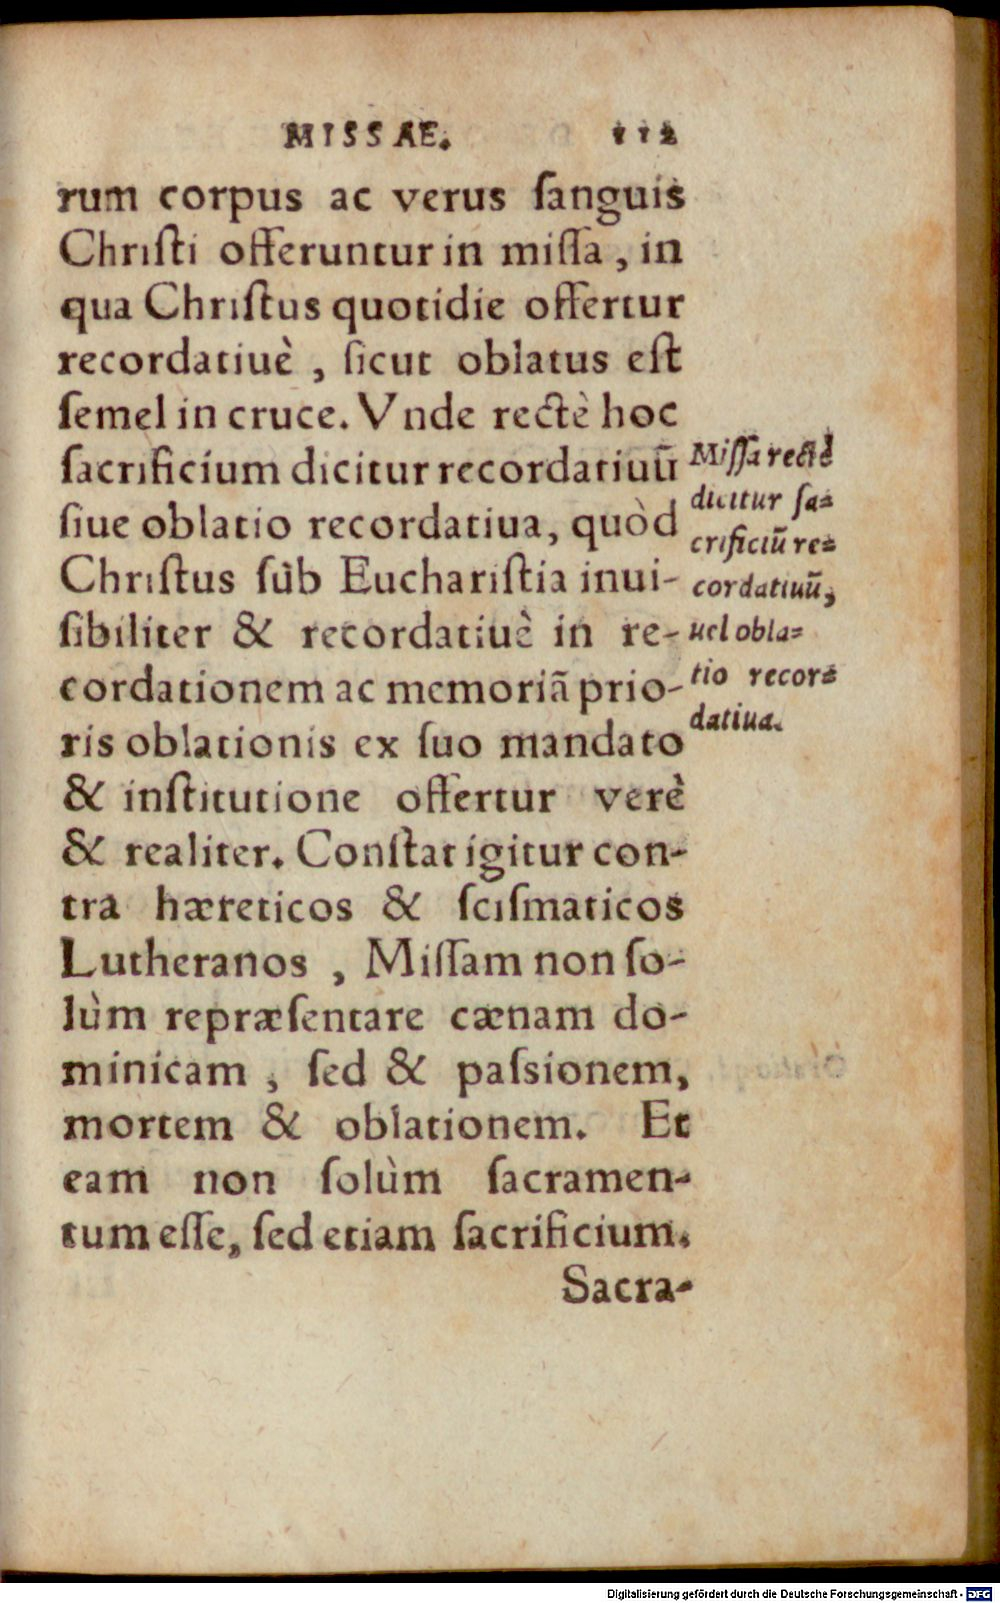 MISSAE. 112
rum corpus ac verus ſanguis
Chriſti offeruntur in miſſa, in
qua Chriſtus quotidie offertur
recordatiuè, ſicut oblatus eſt
ſemel in cruce. Vnde rectè hoc
ſacrificium dicitur recordatiuũ
ſiue oblatio recordatiua, quòd
Chriſtus ſùb Euchariſtia inui-
ſibiliter & recordatiuè in re-
cordationem ac memoriã prio-
ris oblationis ex ſuo mandato
& inſtitutione offertur verè
& realiter. Conſtat igitur con-
tra hæreticos & ſciſmaticos
Lutheranos, Miſſam non ſo-
lùm repræſentare cænam do-
minicam, ſed & paſsionem,
mortem & oblationem. Et
eam non ſolùm ſacramen-
tum eſſe, ſed etiam ſacrificium.
Sacra-
Miſſa rectè
dicitur ſa-
crificiũ re-
cordatiuũ,
uel obla-
tio recor-
datiua.
Digitalisierung gefördert durch die Deutsche Forschungsgemeinschaft - DFG